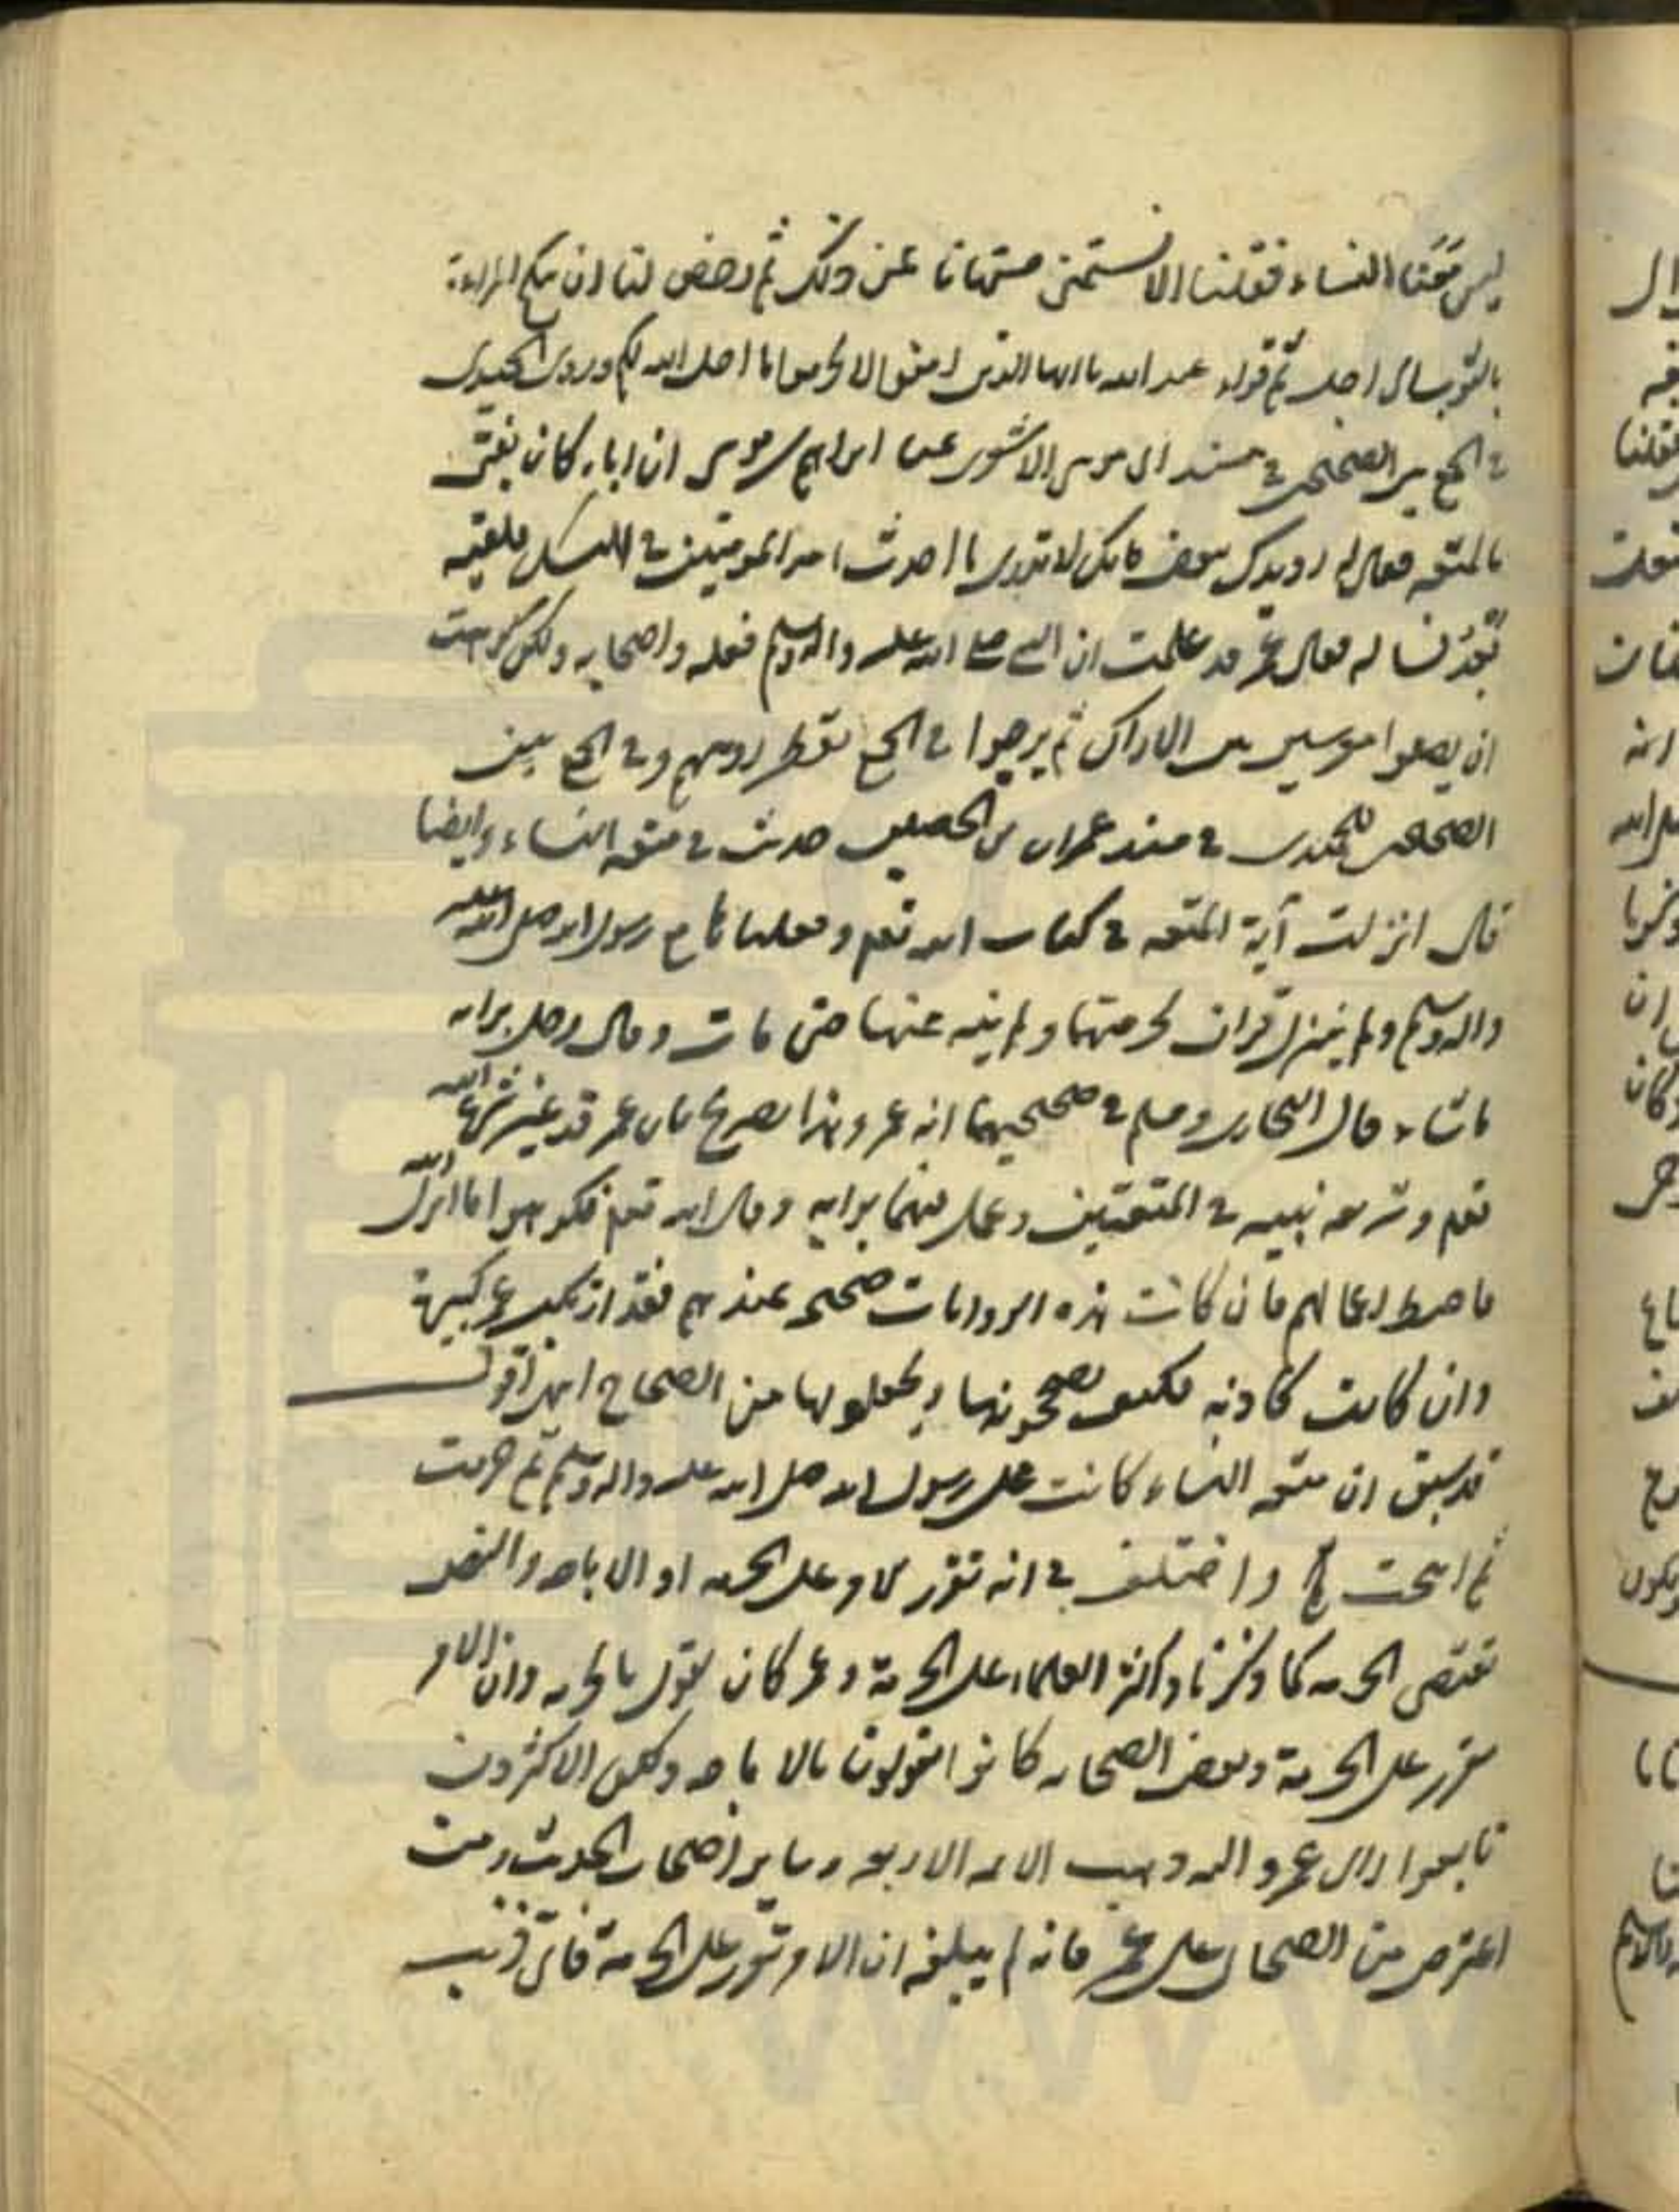 ليس معنا النساء فقلنا الا نستمنى فنهانا عن ذلك ثم رخص لنا ان ننكح المراءة
بالثوب الى اجل ثم قراء عبد الله يا ايها الذين امنوا لا تحرموا ما احل الله لكم وروى الحميدى
فى الجمع بين الصحيحين فى مسند ابى موسى الاشعرى عن ابراهيم بن ابى موسى ان اباه كان يفتى
بالمتعه فقال له رويدك بعض فانك لا تدرى ما احدث امير المومنين فى النسك فلقيه
بعد فساله فقال عمر قد علمت ان النبى صلى الله عليه واله وسلم فعله واصحابه ولكن كرهت
ان يصلوا معرسين بهن الاراك ثم يرجعوا فى الحج تقطر روسهم وفى الجمع بين
الصحيحين للحميدى فى مسند عمران بن الحصين حديث فى متعه النساء وايضا
قال انزلت آية المتعه فى كتاب الله تعم وفعلناها مع رسول الله صلى الله عليه
واله وسلم ولم ينزل قران بحرمتها ولم ينه عنها حتى مات وقال رجل برايه
ما شاء قال البخارى ومسلم فى صحيحيهما انه عمر وهذا تصريح بان عمر قد غير شرع الله
تعم وشرعه نبيه فى المتعتين وعمل فيهما برايه وقال الله تعم فكرهوا ما انزل الله
فاحبط اعمالهم فان كانت هذه الروايات صحيحه عندهم فقد ارتكب عمر كبيرة
وان كانت كاذبه فكيف يصححونها ويجعلونها من الصحاح انتهى اقول
قد سبق ان متعه النساء كانت على رسول الله صلى الله عليه واله وسلم ثم حرمت
ثم ابيحت واختلف فى انه تقرر الامر على الحرمه او الاباحه والنص
تقتضى الحرمه كما ذكرنا واكثر العلماء على الحرمة وعمر كان يقول بالحرمه وان الامر
تقرر على الحرمة وبعض الصحابه كانوا يقولون بالاباحه ولكن الاكثرون
تابعوا راى عمر واليه ذهب الائمه الاربعه وساير اصحاب الحديث ومن
اعترض من الصحابه على عمر فانه لم يبلغه ان الامر تقرر على الحرمة فاى ذنب